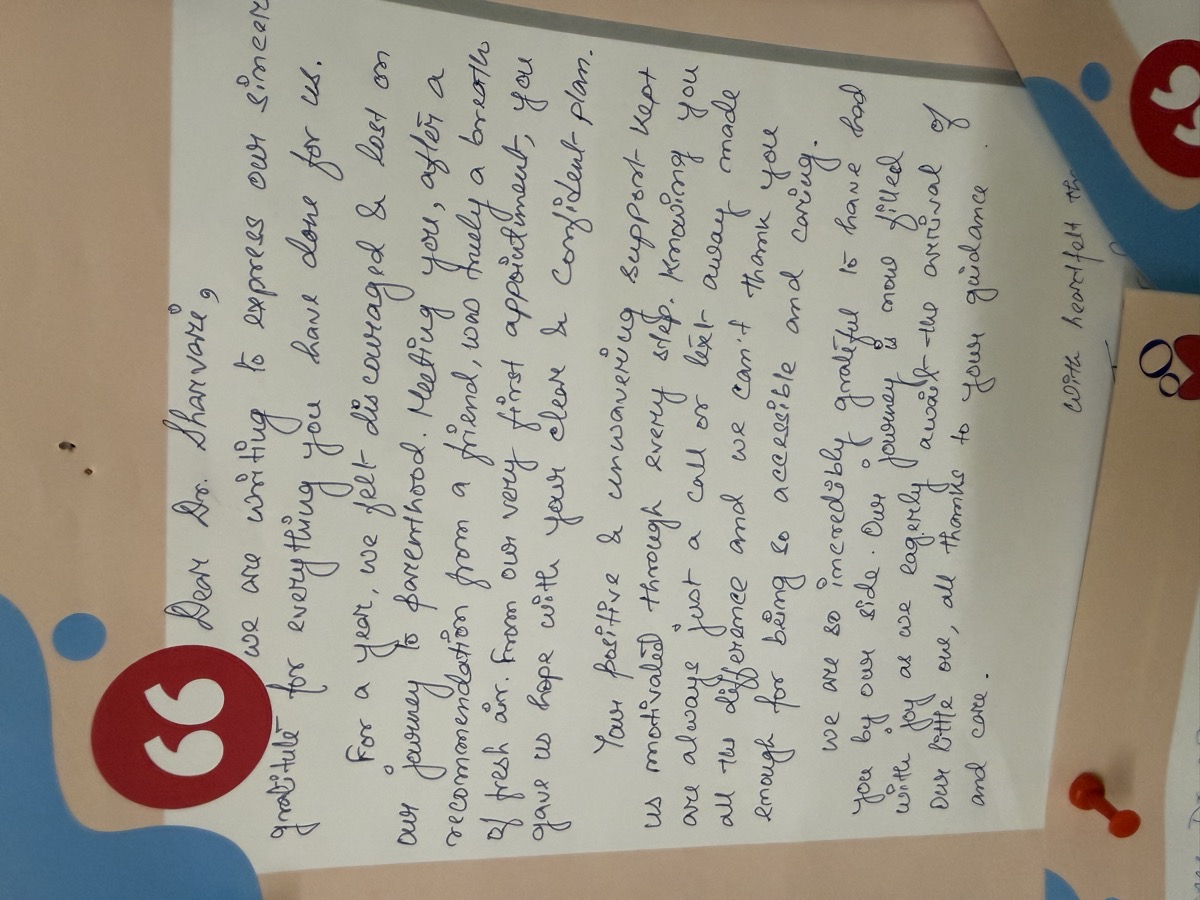 Dear Dr. Sharvari,
we are writing to express our sincere
gratitude for everything you have done for us.
For a year, we felt discouraged & lost on
our journey to parenthood. Meeting you, after a
recommendation from a friend, was truly a breath
of fresh air. From our very first appointment, you
gave us hope with your clear & confident plan.
Your positive & unwavering support kept
us motivated through every step. Knowing you
are always just a call or text away made
all the difference and we can't thank you
enough for being so accessible and caring.
we are so incredibly grateful to have had
you by our side. Our journey is now filled
with joy as we eagerly await the arrival of
our little one, all thanks to your guidance
and care.
with heartfelt